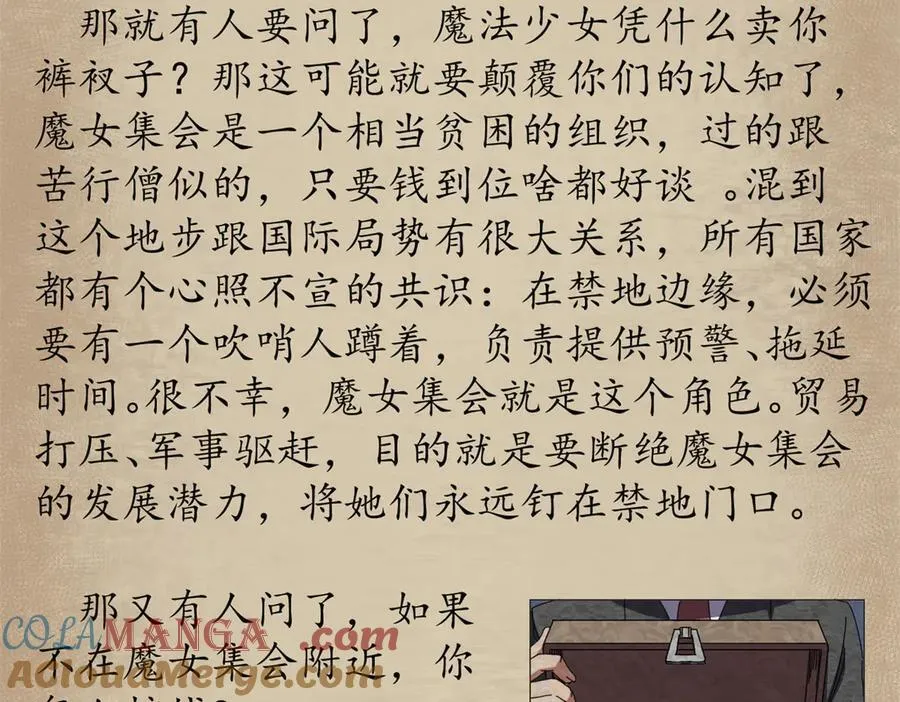 那就有人要问了，魔法少女凭什么卖你
裤衩子？那这可能就要颠覆你们的认知了，
魔女集会是一个相当贫困的组织，过的跟
苦行僧似的，只要钱到位啥都好谈 。混到
这个地步跟国际局势有很大关系，所有国家
都有个心照不宣的共识：在禁地边缘，必须
要有一个吹哨人蹲着，负责提供预警、拖延
时间。很不幸，魔女集会就是这个角色。贸易
打压、军事驱赶，目的就是要断绝魔女集会
的发展潜力，将她们永远钉在禁地门口。
那又有人问了，如果
COLAMANGA.com
不在魔女集会附近，你
AcloudMerge.com